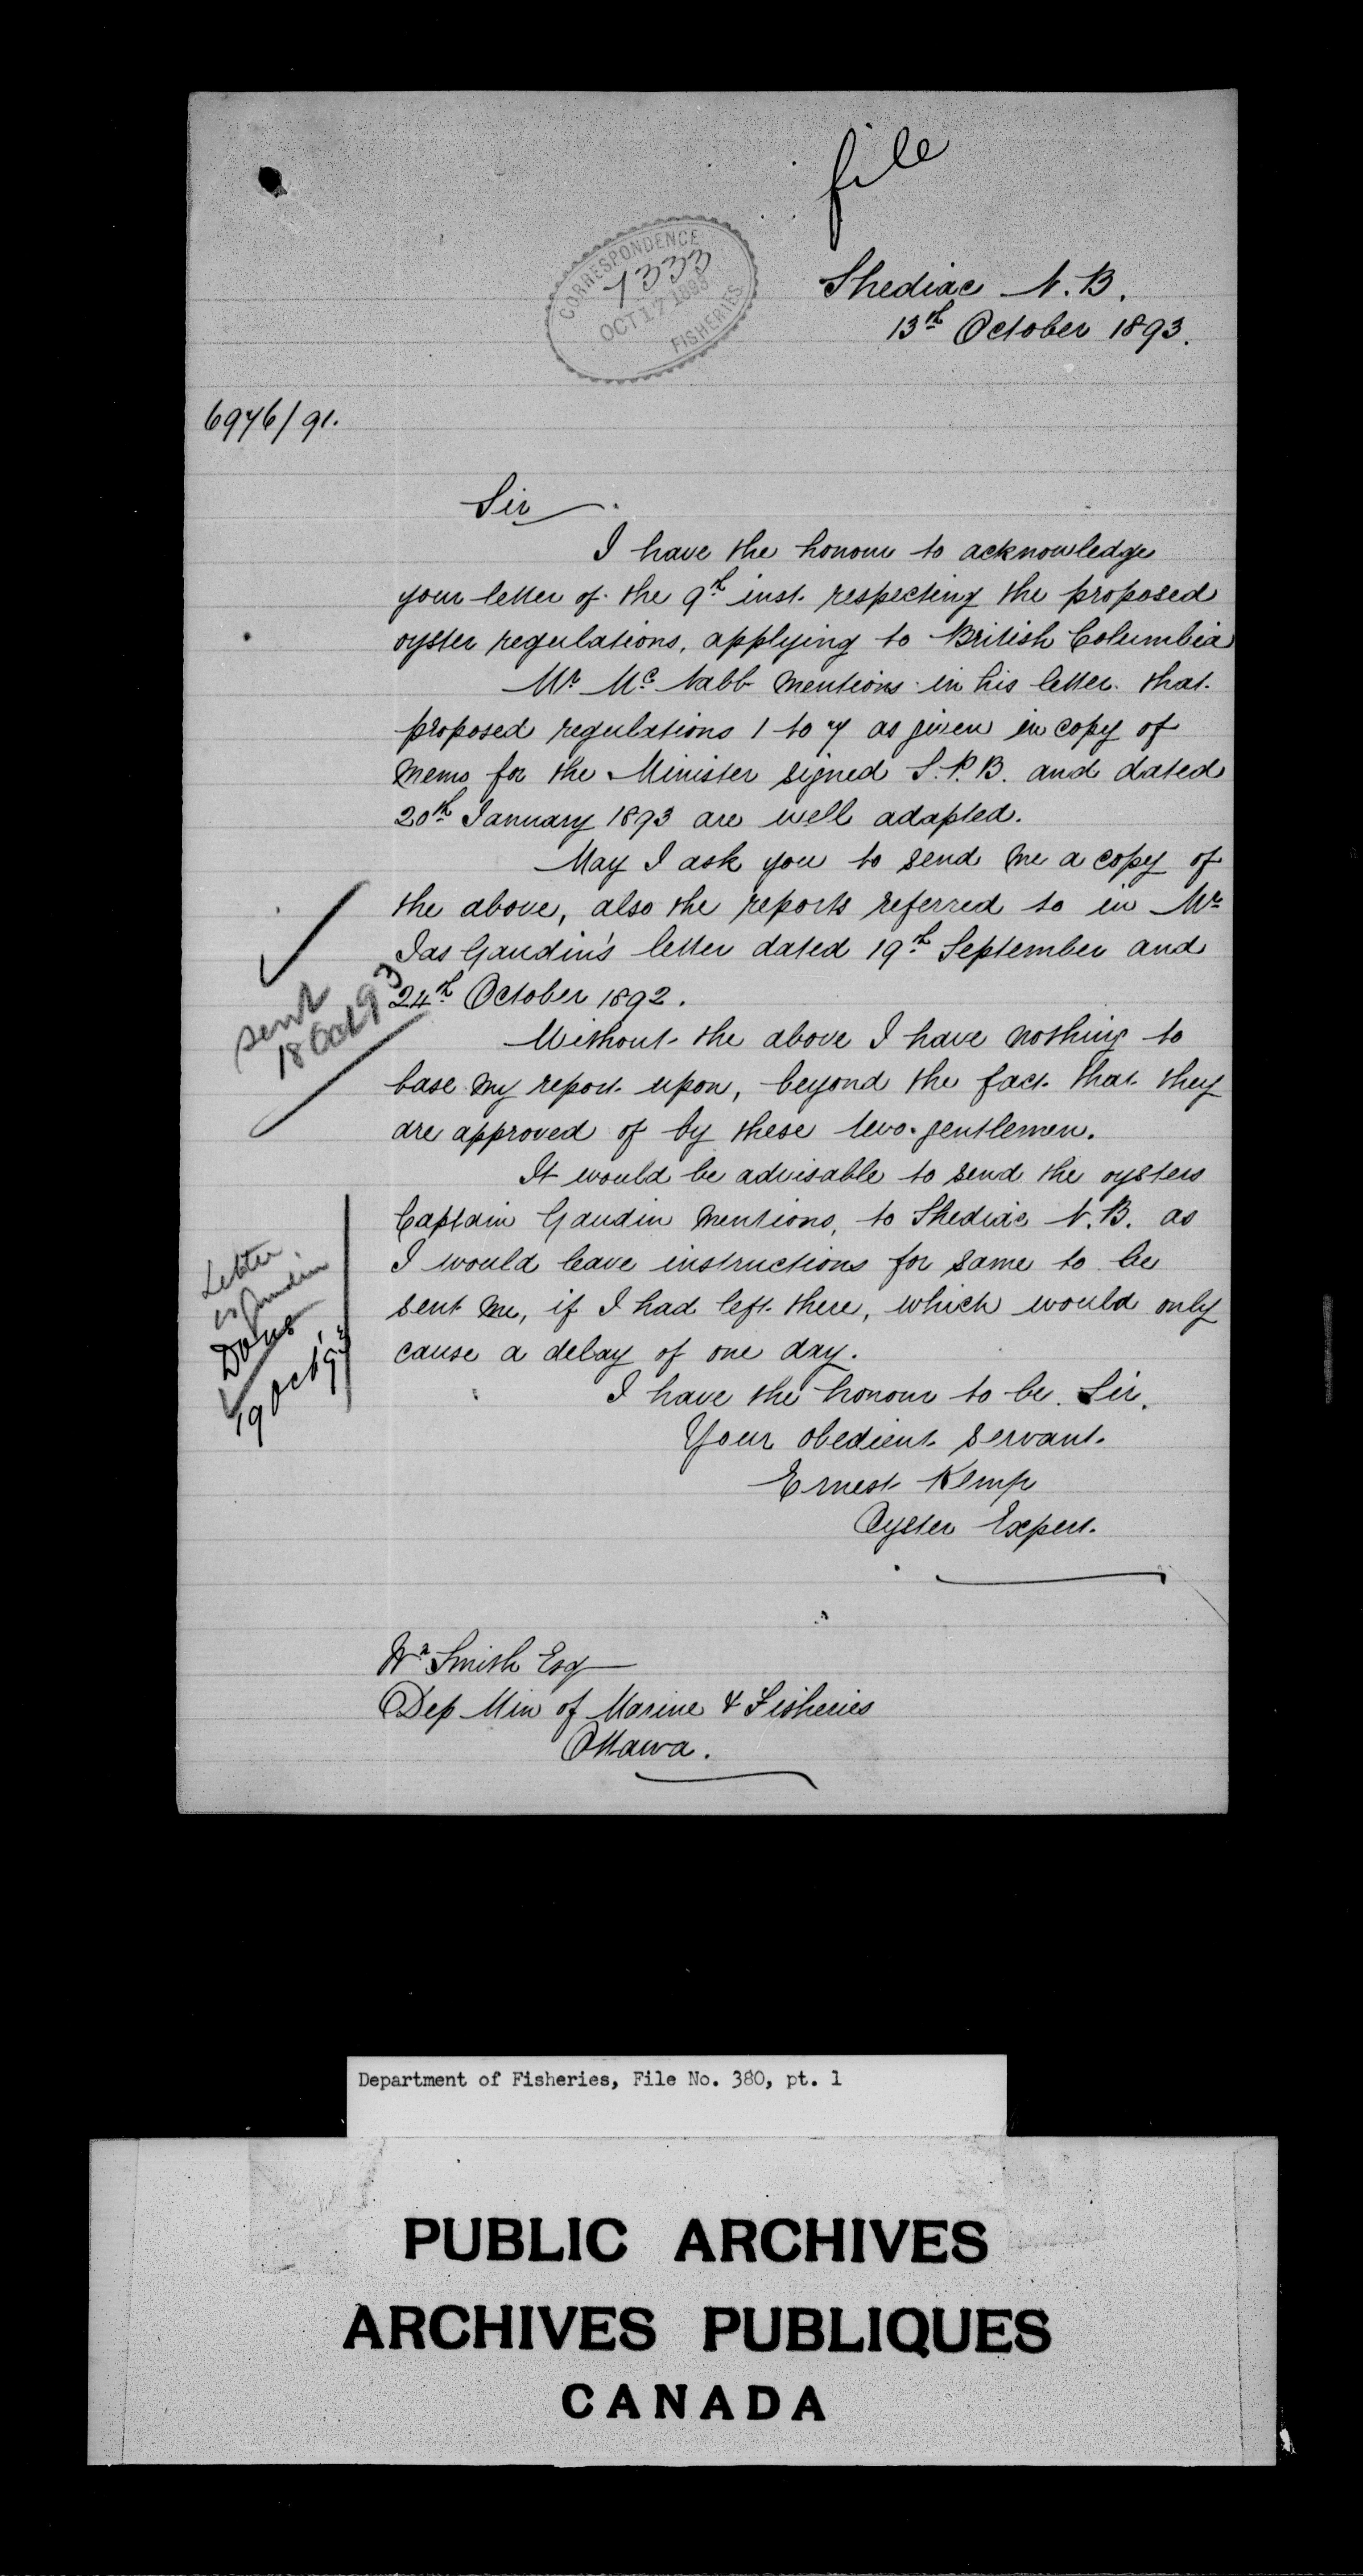 file
CORRESPONDENCE
1333
OCT 17 1893
FISHERIES
Shediac N.B.
13th October 1893.
6976/91.
Sir
I have the honour to acknowledge
your letter of the 9th inst. respecting the proposed
oyster regulations, applying to British Columbia
Mr McNabb mentions in his letter that
proposed regulations 1 to 7 as given in copy of
memo for the Minister signed S.P.B. and dated
20th January 1893 are well adapted.
May I ask you to send me a copy of
the above, also the reports referred to in Mr
Jas Gaudin's letter dated 19th September and
24th October 1892.
sent
18 Oct 93
Without the above I have nothing to
base my report upon, beyond the fact that they
are approved of by these two gentlemen.
It would be advisable to send the oysters
Captain Gaudin mentions, to Shediac N.B. as
I would leave instructions for same to be
sent me, if I had left there, which would only
cause a delay of one day.
Letter
to Gaudin
Done
19 Oct '93
I have the honour to be. Sir.
Your obedient servant.
Ernest Kemp
Oyster Expert.
Wm Smith Esq
Dep Min of Marine & Fisheries
Ottawa.
Department of Fisheries, File No. 380, pt. 1
PUBLIC ARCHIVES
ARCHIVES PUBLIQUES
CANADA